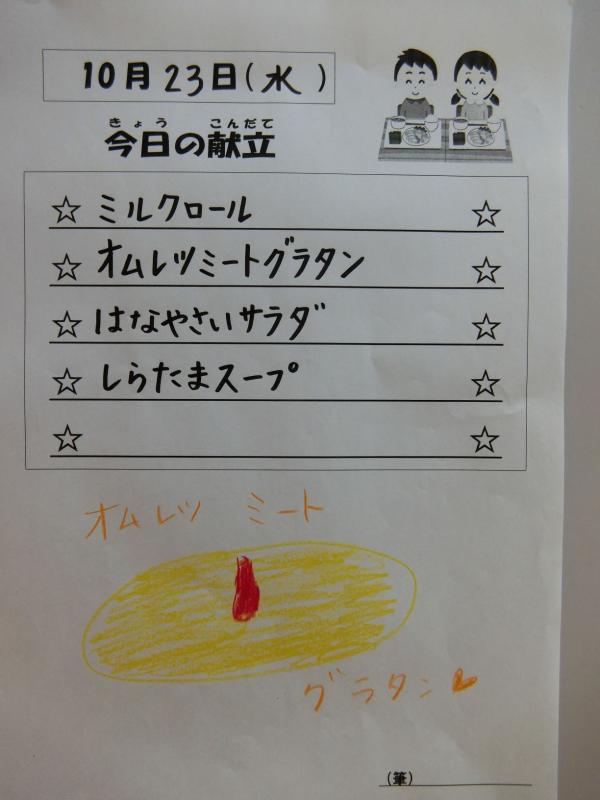 10月23日(水)
きょう こんだて
今日の献立
☆ ミルクロール ☆
☆ オムレツミートグラタン ☆
☆ はなやさいサラダ ☆
☆ しらたまスープ ☆
☆ ☆
オムレツ ミート
グラタン
(筆)